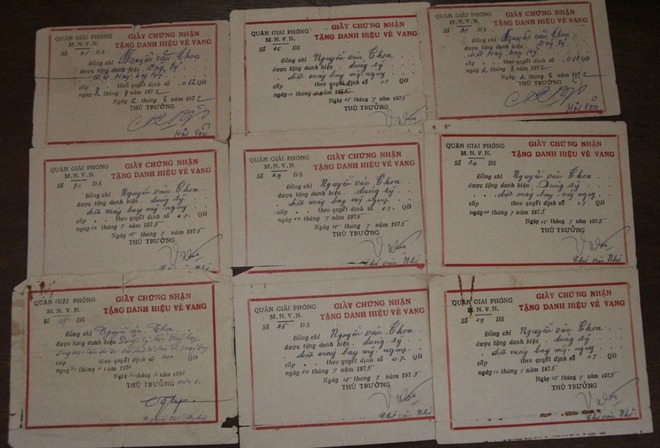 QUÂN GIẢI PHÓNG
M.N.V.N.
GIẤY CHỨNG NHẬN
TẶNG DANH HIỆU VẺ VANG
Số DS
Đồng chí Nguyễn văn Thoa
được tặng danh hiệu Dũng sỹ
diệt máy bay Mỹ
cấp theo quyết định số 012 QĐ
ngày 2 tháng 9 năm 1972
Ngày 2 tháng 9 năm 1972
THỦ TRƯỞNG
QUÂN GIẢI PHÓNG
M.N.V.N.
GIẤY CHỨNG NHẬN
TẶNG DANH HIỆU VẺ VANG
Số 26 DS
Đồng chí Nguyễn văn Thoa
được tặng danh hiệu dũng sỹ
diệt máy bay mỹ ngụy
cấp theo quyết định số 07 QĐ
ngày tháng 7 năm 1975
Ngày 15 tháng 7 năm 1975
THỦ TRƯỞNG
QUÂN GIẢI PHÓNG
M.N.V.N.
GIẤY CHỨNG NHẬN
TẶNG DANH HIỆU VẺ VANG
Số DS
Đồng chí Nguyễn văn Thoa
được tặng danh hiệu Dũng sỹ
diệt máy bay Mỹ
cấp theo quyết định số 012 QĐ
ngày 2 tháng 9 năm 1972
Ngày 2 tháng 9 năm 1972
THỦ TRƯỞNG
QUÂN GIẢI PHÓNG
M.N.V.N.
GIẤY CHỨNG NHẬN
TẶNG DANH HIỆU VẺ VANG
Số 30 DS
Đồng chí Nguyễn văn Thoa
được tặng danh hiệu dũng sỹ
diệt máy bay mỹ ngụy
cấp theo quyết định số 07 QĐ
ngày tháng 7 năm 1975
Ngày 15 tháng 7 năm 1975
THỦ TRƯỞNG
QUÂN GIẢI PHÓNG
M.N.V.N.
GIẤY CHỨNG NHẬN
TẶNG DANH HIỆU VẺ VANG
Số 29 DS
Đồng chí Nguyễn văn Thoa
được tặng danh hiệu dũng sỹ
diệt máy bay mỹ ngụy
cấp theo quyết định số 07 QĐ
ngày tháng 7 năm 1975
Ngày 15 tháng 7 năm 1975
THỦ TRƯỞNG
QUÂN GIẢI PHÓNG
M.N.V.N.
GIẤY CHỨNG NHẬN
TẶNG DANH HIỆU VẺ VANG
Số 24 DS
Đồng chí Nguyễn văn Thoa
được tặng danh hiệu Dũng sỹ
diệt máy bay mỹ ngụy
cấp theo quyết định số 07 QĐ
ngày tháng 7 năm 1975
Ngày 15 tháng 7 năm 1975
THỦ TRƯỞNG
QUÂN GIẢI PHÓNG
M.N.V.N.
GIẤY CHỨNG NHẬN
TẶNG DANH HIỆU VẺ VANG
Số DS
Đồng chí Nguyễn văn Thoa
được tặng danh hiệu
cấp theo quyết định số QĐ
ngày tháng năm
Ngày tháng năm
THỦ TRƯỞNG
QUÂN GIẢI PHÓNG
M.N.V.N.
GIẤY CHỨNG NHẬN
TẶNG DANH HIỆU VẺ VANG
Số 25 DS
Đồng chí Nguyễn văn Thoa
được tặng danh hiệu dũng sỹ
diệt máy bay mỹ ngụy
cấp theo quyết định số 07 QĐ
ngày tháng 7 năm 1975
Ngày 15 tháng 7 năm 1975
THỦ TRƯỞNG
QUÂN GIẢI PHÓNG
M.N.V.N.
GIẤY CHỨNG NHẬN
TẶNG DANH HIỆU VẺ VANG
Số DS
Đồng chí Nguyễn văn Thoa
được tặng danh hiệu dũng sỹ
diệt máy bay mỹ ngụy
cấp theo quyết định số 07 QĐ
ngày tháng 7 năm 1975
Ngày 15 tháng 7 năm 1975
THỦ TRƯỞNG